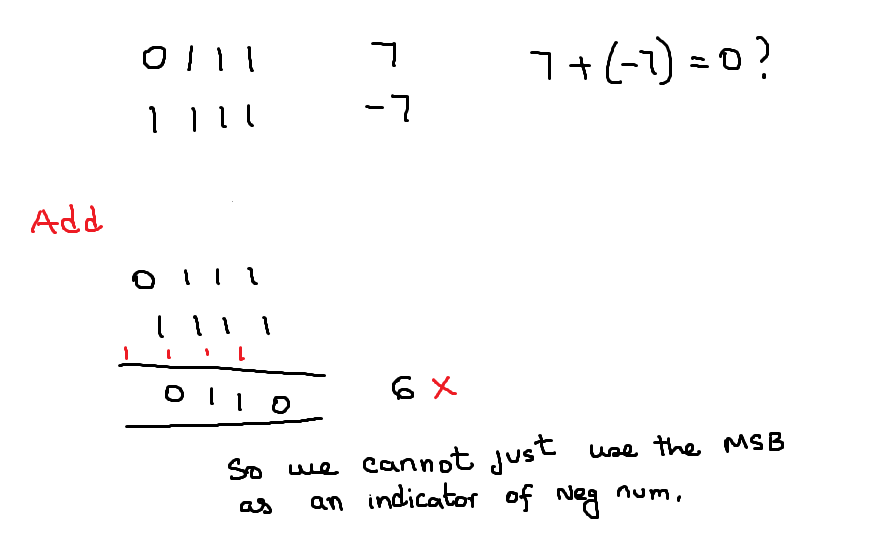 0 1 1 1 7 7 + (-7) = 0 ?
1 1 1 1 -7
Add
0 1 1 1
1 1 1 1
1 1 1 1
0 1 1 0 6 X
So we cannot just use the MSB
as an indicator of Neg num.